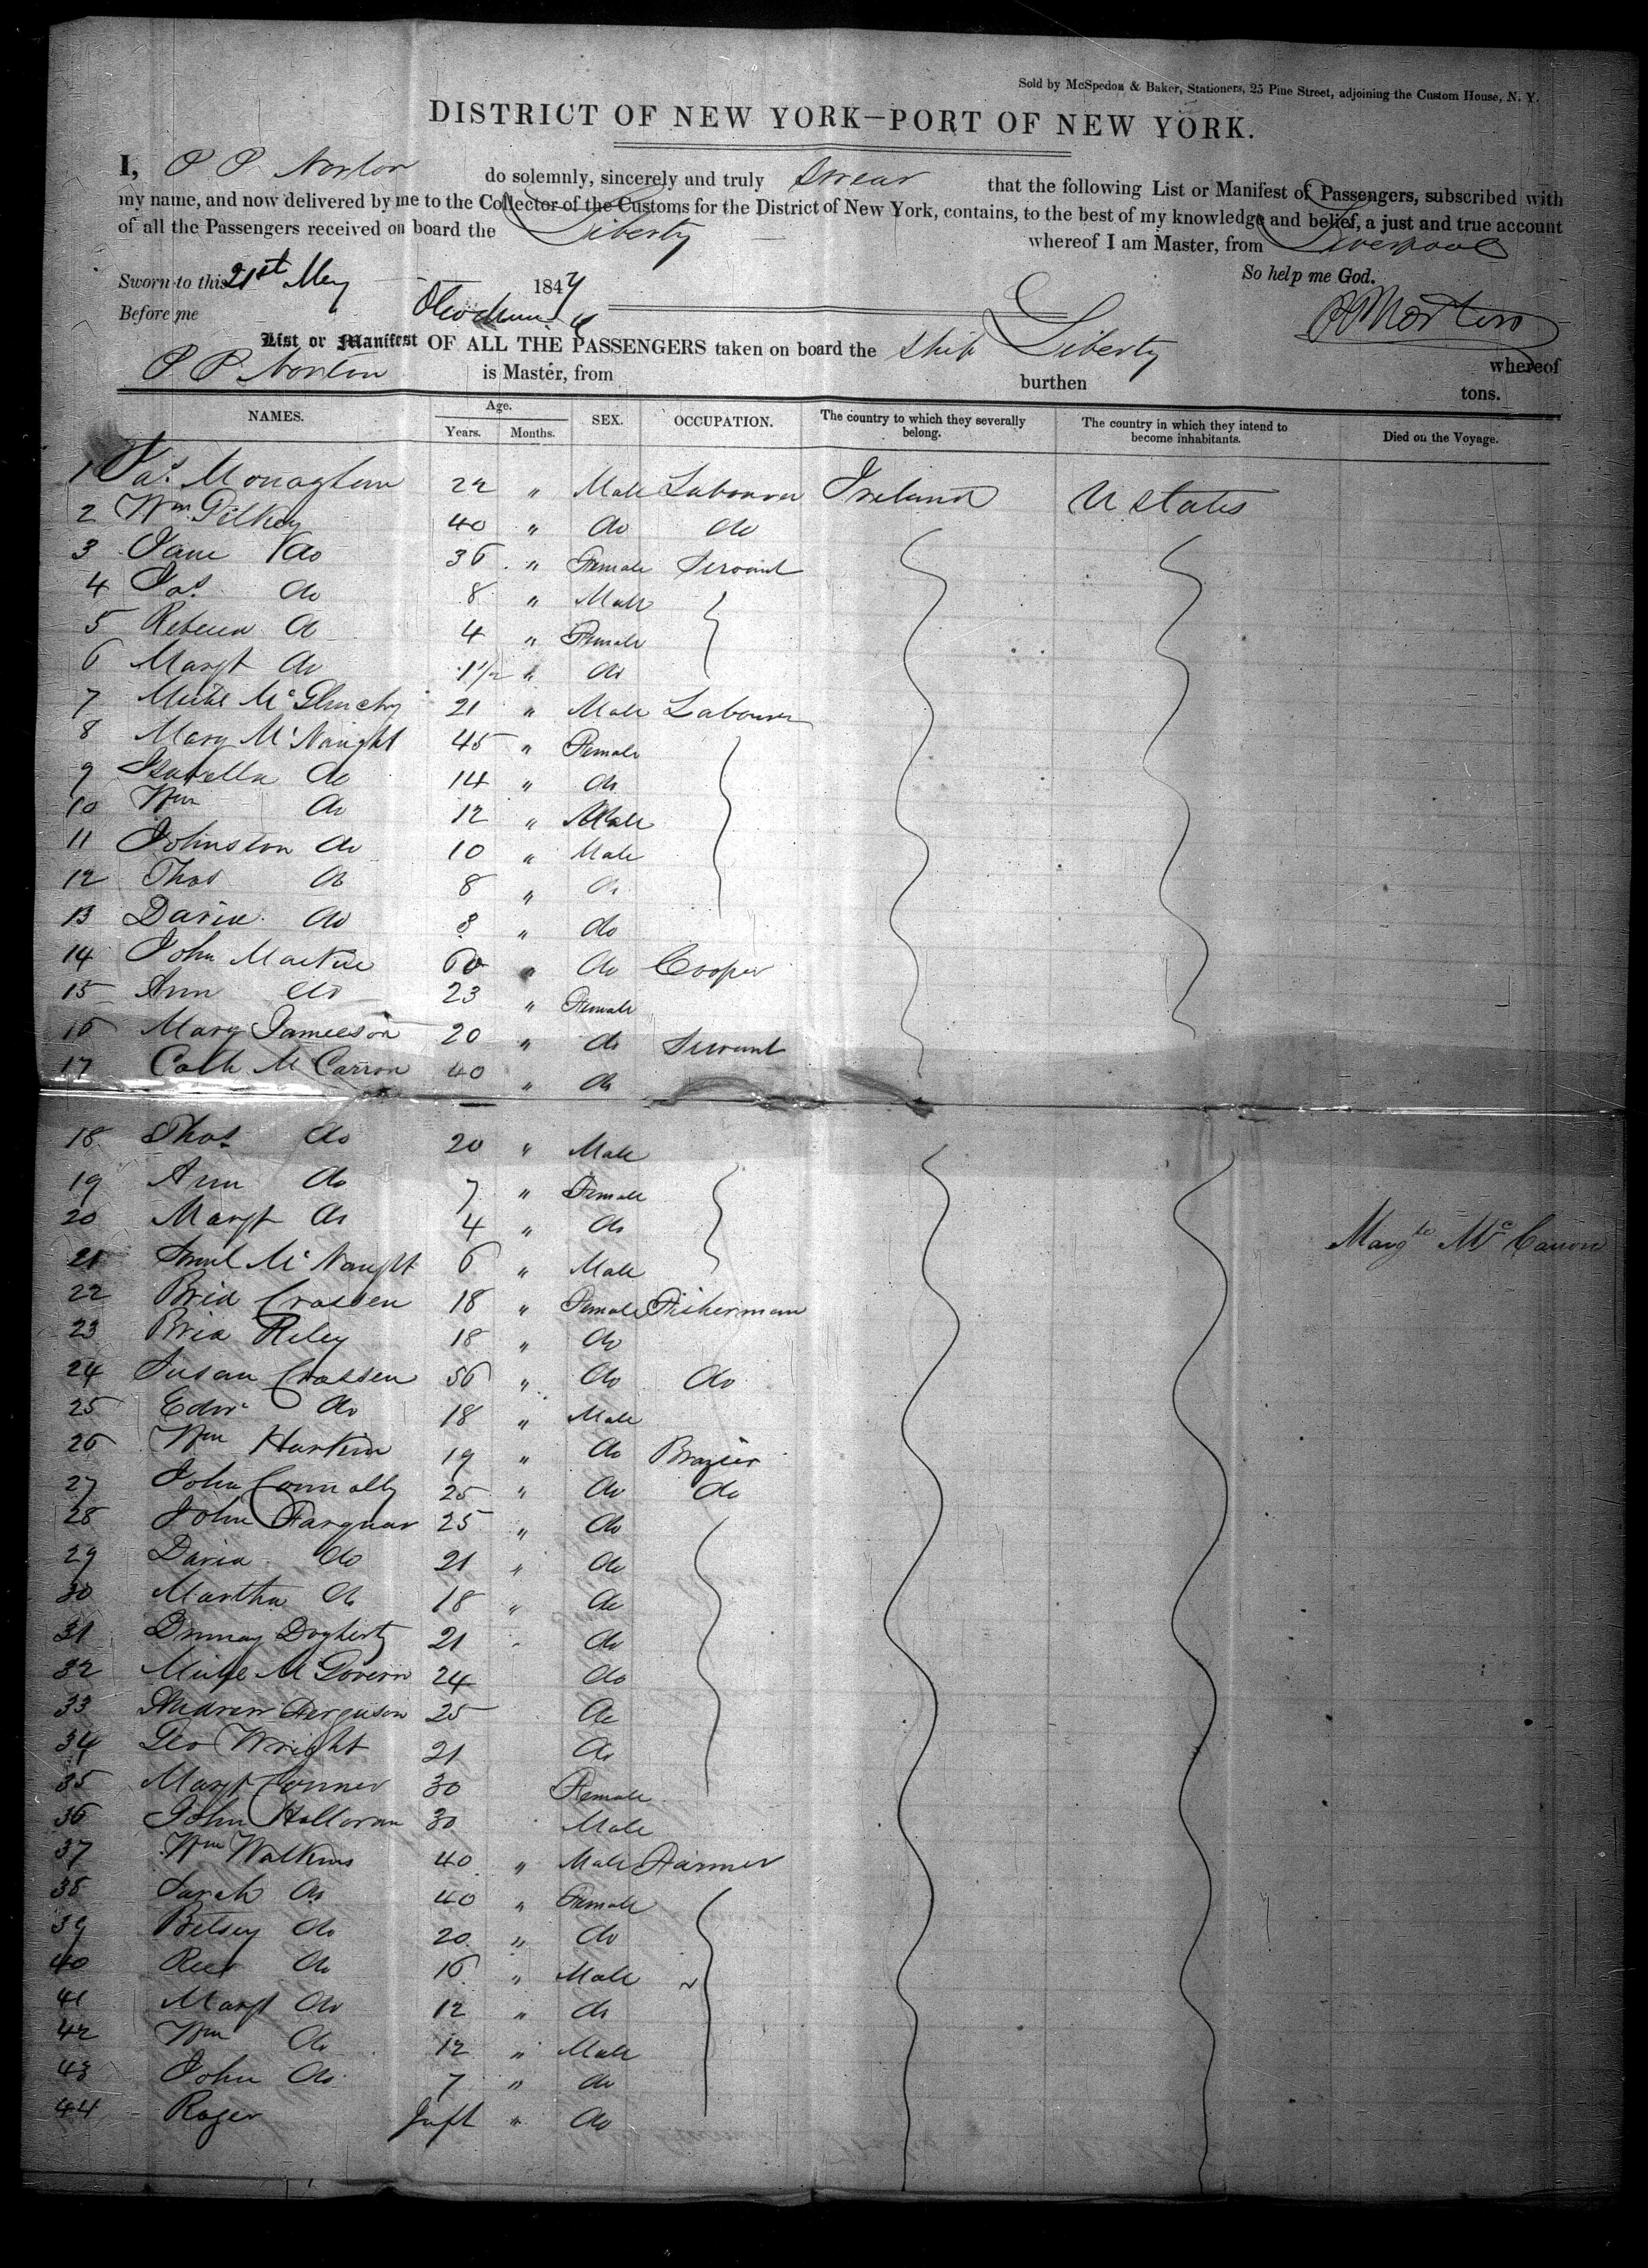 Sold by McSpedon & Baker, Stationers, 25 Pine Street, adjoining the Custom House, N. Y.
DISTRICT OF NEW YORK—PORT OF NEW YORK.
I, P P Norton do solemnly, sincerely and truly swear that the following List or Manifest of Passengers, subscribed with
my name, and now delivered by me to the Collector of the Customs for the District of New York, contains, to the best of my knowledge and belief, a just and true account
of all the Passengers received on board the Liberty whereof I am Master, from Liverpool
So help me God.
Sworn to this 21st May 1847
Before me
P P Norton
List or Manifest OF ALL THE PASSENGERS taken on board the Ship Liberty whereof
P P Norton is Master, from burthen tons.
NAMES. Age. Years. Months. SEX. OCCUPATION. The country to which they severally belong. The country in which they intend to become inhabitants. Died on the Voyage.
1 Jas. Monaghan 22 " Male Labourer Ireland U States
2 Wm. Gilkey 40 " do do
3 Jane do 36 " Female Servant
4 Jas. do 8 " Male
5 Rebecca do 4 " Female
6 Margt do 1 1/2 " do
7 Michl McGlinchy 21 " Male Labourer
8 Mary McNaught 45 " Female
9 Isabella do 14 " do
10 Wm do 12 " Male
11 Johnston do 10 " Male
12 Thos do 8 " do
13 David do 3 " do
14 John Martin 60 " do Cooper
15 Ann do 23 " Female
16 Mary Jameeson 20 " do Servant
17 Cath McCarron 40 " do
18 Thos do 20 " Male
19 Ann do 7 " Female
20 Margt do 4 " do Margte McCarron
21 Saml McNaught 6 " Male
22 Brid Crossen 18 " Female Fisherman
23 Brid Riley 18 " do
24 Susan Crossen 56 " do do
25 Edwd do 18 " Male
26 Wm Harkin 19 " do Brazier
27 John Connolly 25 " do do
28 John Farquar 25 " do
29 David do 21 " do
30 Martha do 18 " do
31 Dogherty 21 " do
32 Michl McGovern 24 do
33 Andrew Ferguson 25 do
34 Geo Wright 21 do
35 Margt Conner 30 Female
36 John Halloran 30 Male
37 Wm Watkins 40 " Male Farmer
38 Sarah do 40 " Female
39 Betsey do 20 " do
40 Rees do 16 " Male
41 Margt do 12 " do
42 Wm do 12 " Male
43 John do 7 " do
44 Roger Inft " do